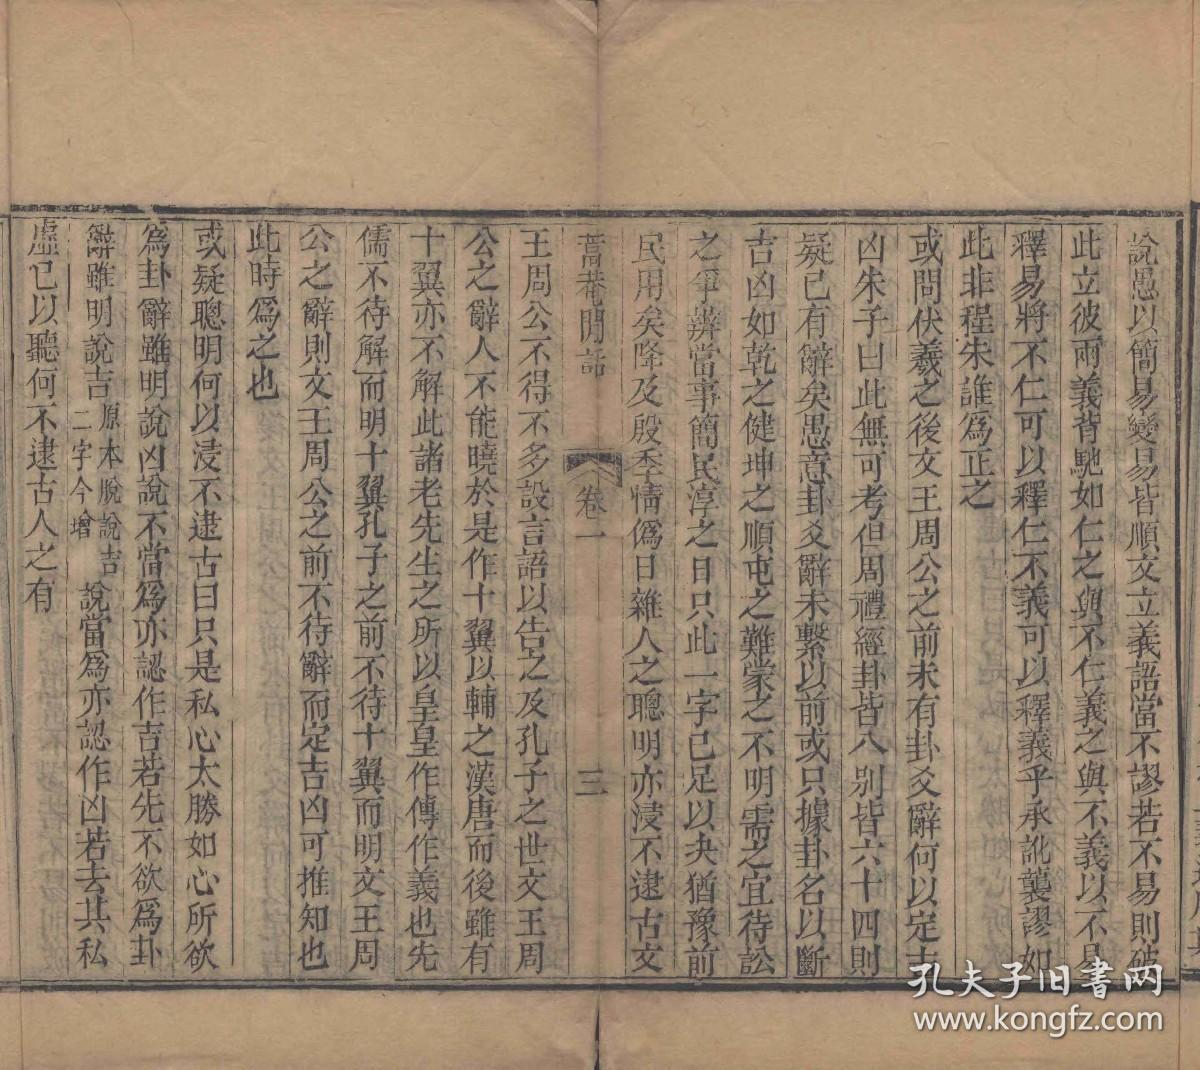 說愚以簡易變易皆順文立義語當不謬若不易則破
此立彼兩義背馳如仁之與不仁義之與不義以不易
釋易將不仁可以釋仁不義可以釋義乎承訛襲謬如
此非程朱誰為正之
或問伏羲之後文王周公之前未有卦爻辭何以定吉
凶朱子曰此無可考但周禮經卦皆八別皆六十四則
疑已有辭矣愚意卦爻辭未繫以前或只據卦名以斷
吉凶如乾之健坤之順屯之難蒙之不明需之宜待訟
之爭辨當事簡民淳之日只此一字已足以夬猶豫前
民用矣降及殷季情偽日雜人之聰明亦浸不逮古文
蒿菴閒話
卷一
三
王周公不得不多設言語以告之及孔子之世文王周
公之辭人不能曉於是作十翼以輔之漢唐而後雖有
十翼亦不解此諸老先生之所以皇皇作傳作義也先
儒不待解而明十翼孔子之前不待十翼而明文王周
公之辭則文王周公之前不待辭而定吉凶可推知也
此時為之也
或疑聰明何以浸不逮古曰只是私心太勝如心所欲
為卦辭雖明說凶說不當為亦認作吉若先不欲為卦
辭雖明說吉原本脫說吉二字今增說當為亦認作凶若去其私
虛已以聽何不逮古人之有
孔夫子旧书网
www.kongfz.com